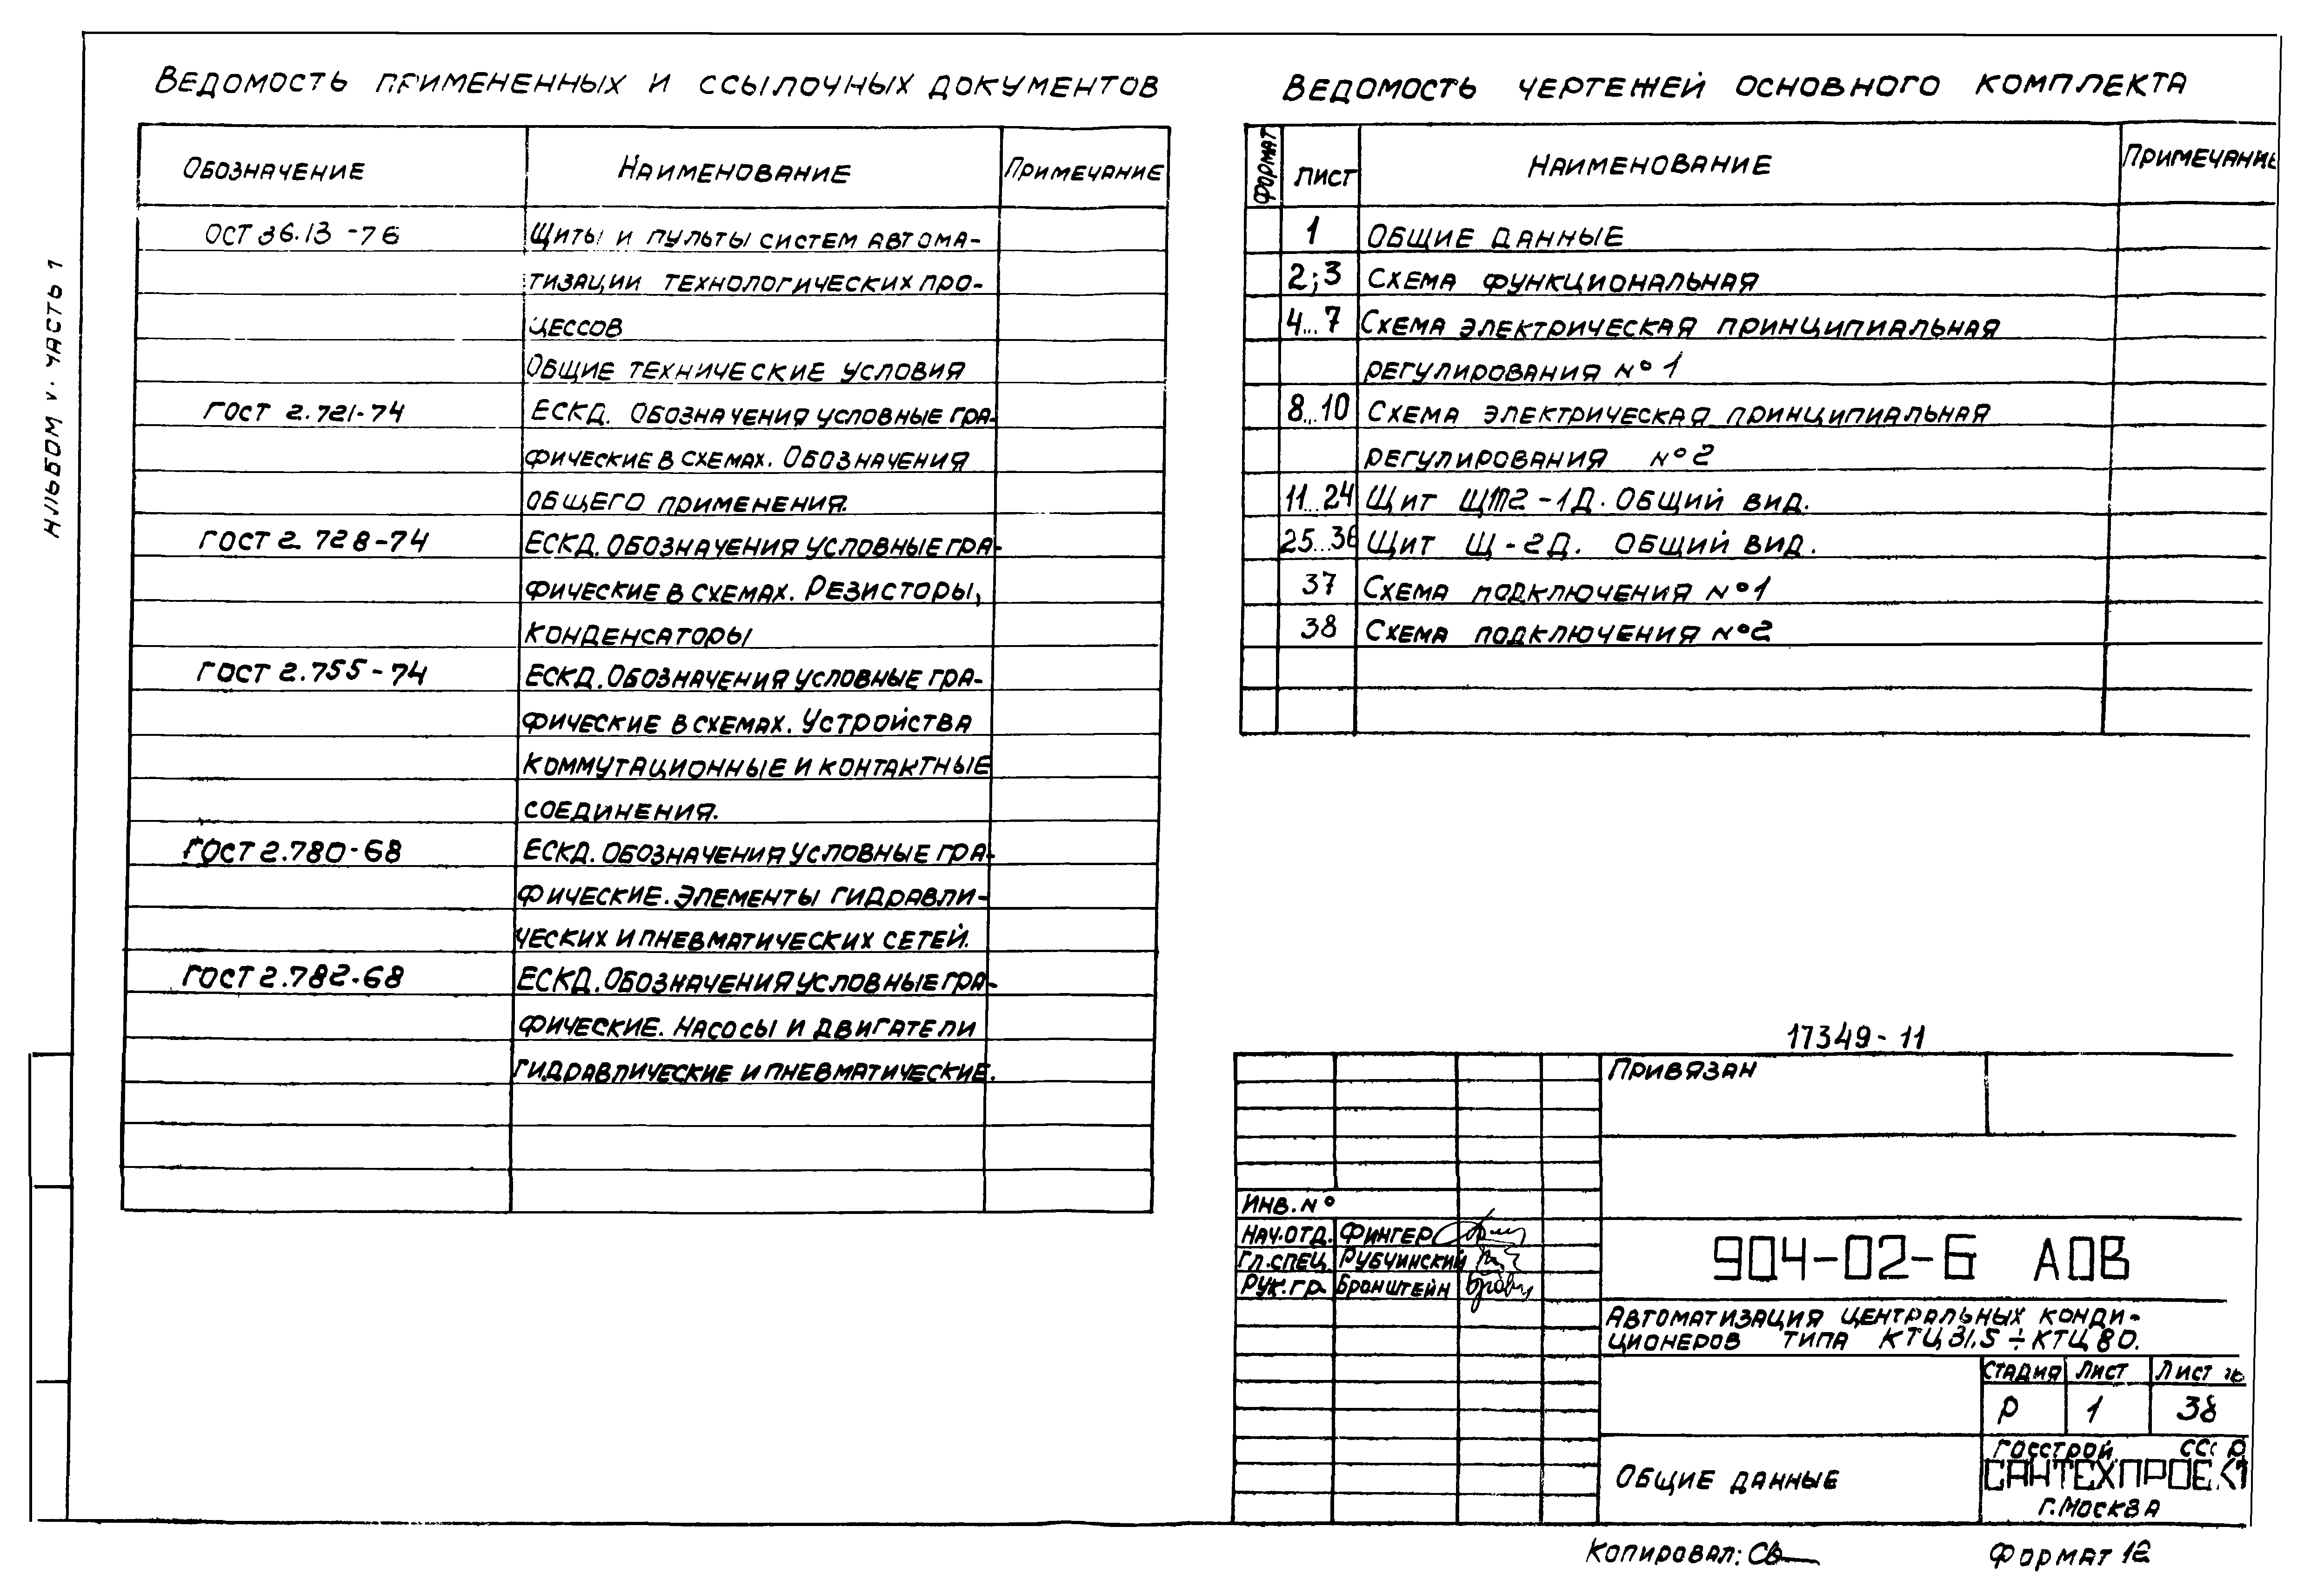 Альбом V. Часть 1
Ведомость примененных и ссылочных документов
Обозначение Наименование Примечание
ОСТ 36.13-76 Щиты и пульты систем автома-
тизации технологических про-
цессов
Общие технические условия
ГОСТ 2.721-74 ЕСКД. Обозначения условные гра-
фические в схемах. Обозначения
общего применения.
ГОСТ 2.728-74 ЕСКД. Обозначения условные гра-
фические в схемах. Резисторы,
конденсаторы
ГОСТ 2.755-74 ЕСКД. Обозначения условные гра-
фические в схемах. Устройства
коммутационные и контактные
соединения.
ГОСТ 2.780-68 ЕСКД. Обозначения условные гра-
фические. Элементы гидравли-
ческих и пневматических сетей.
ГОСТ 2.782-68 ЕСКД. Обозначения условные гра-
фические. Насосы и двигатели
гидравлические и пневматические.
Ведомость чертежей основного комплекта
Формат Лист Наименование Примечание
1 Общие данные
2;3 Схема функциональная
4...7 Схема электрическая принципиальная
регулирования №1
8...10 Схема электрическая принципиальная
регулирования №2
11...24 Щит ЩТ2-1Д. Общий вид.
25...36 Щит Щ-2Д. Общий вид.
37 Схема подключения №1
38 Схема подключения №2
17349-11
Привязан
Инв. №
Нач.отд. Фингер
Гл.спец. Рубчинский
Рук.гр. Бронштейн
904-02-6 АОВ
Автоматизация центральных конди-
ционеров типа КТЦ 31,5÷КТЦ 80.
Стадия Лист Лист
Р 1 38
Общие данные
Госстрой СССР
САНТЕХПРОЕКТ
г. Москва
Копировал:
Формат 12